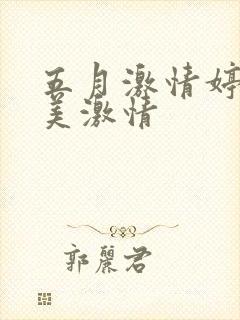 五月激情婷
美激情
郭丽君